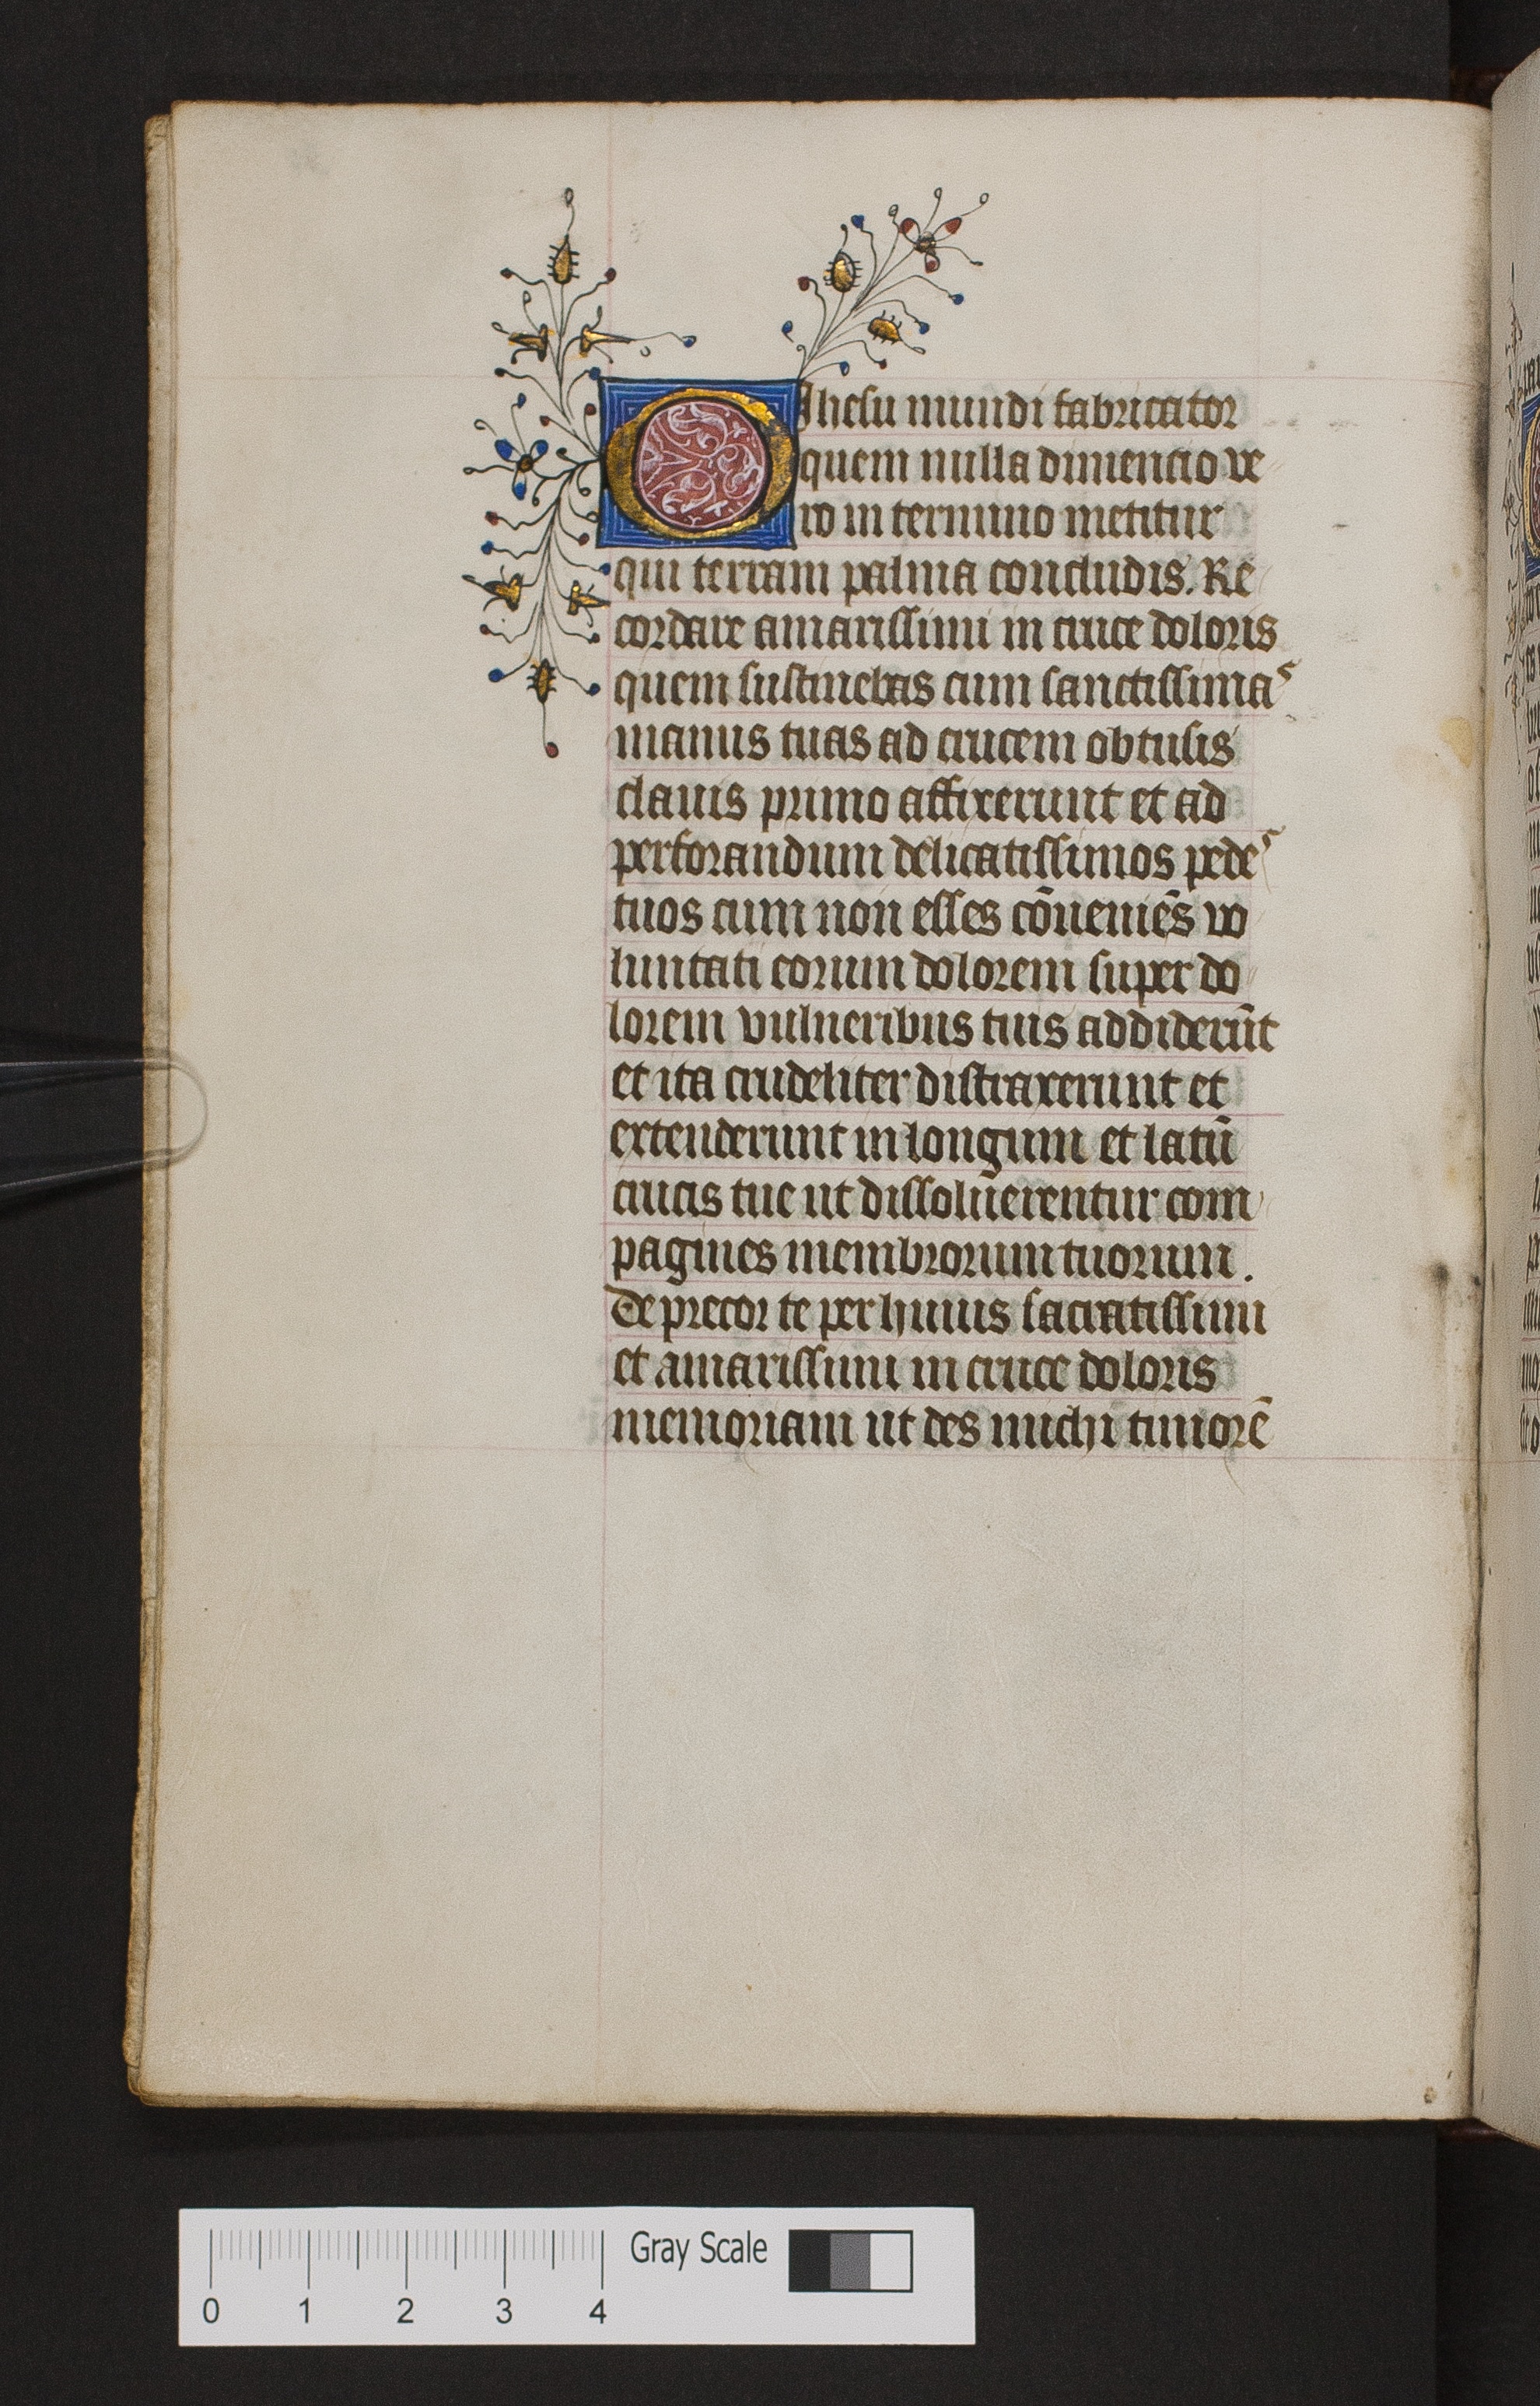 O Ihesu mundi fabricator
quem nulla dimencio ve
ro in termino metitur
qui terram palma concludis. Re
cordare amarissimi in cruce doloris
quem sustinebas cum sanctissimas
manus tuas ad crucem obtusis
clauis primo affixerunt et ad
perforandum delicatissimos pedes
tuos cum non esses cōueniēs vo
luntati eorum dolorem super do
lorem vulneribus tuis addiderūt
et ita crudeliter distraxerunt et
extenderunt in longum et latū
crucis tue ut dissoluerentur com
pagines membrorum tuorum.
De precor te per huius sacratissimi
et amarissimi in cruce doloris
memoriam ut des michi timorē
Gray Scale
0 1 2 3 4